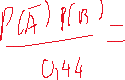 P(A̅) P(B) =
0,44